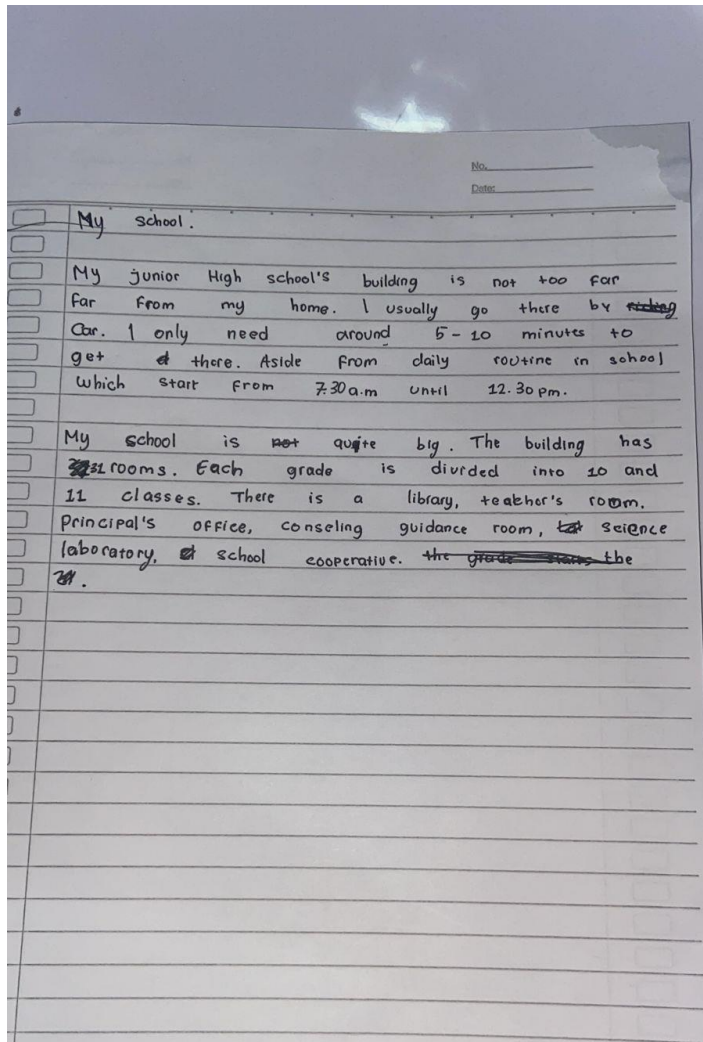 No.
Date:
My school.
My junior High school's building is not too far
far from my home. I usually go there by riding
Car. I only need around 5-10 minutes to
get there. Aside from daily routine in school
which start from 7.30 a.m until 12.30 pm.
My school is not quite big. The building has
31 rooms. Each grade is divided into 10 and
11 classes. There is a library, teacher's room.
Principal's office, conseling guidance room, science
laboratory, school cooperative. the grade starts the